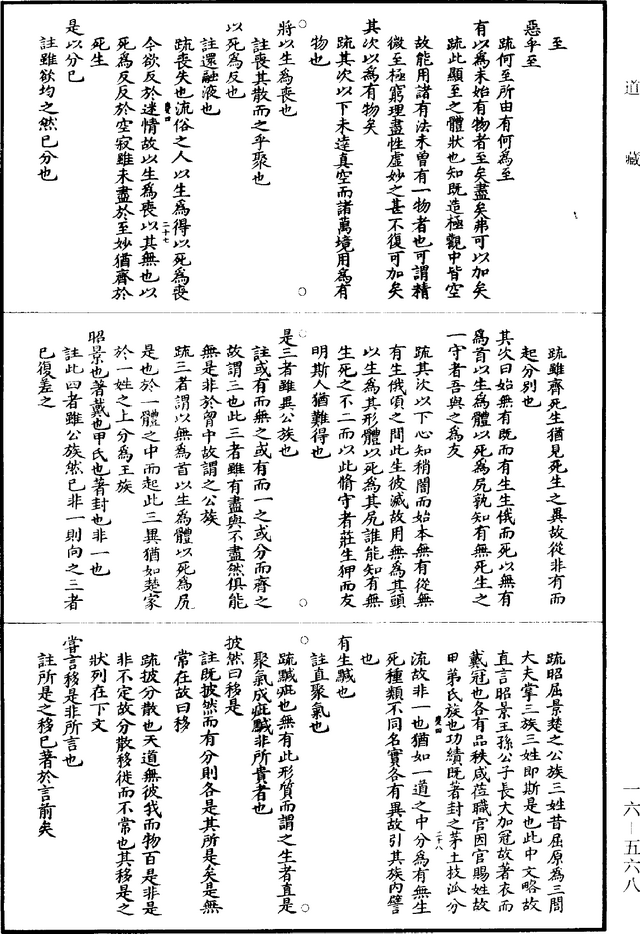 道藏
至
惡乎至
疏何至所由有何為至
有以為未始有物者至矣盡矣弗可以加矣
疏此顯至之體狀也知既造極觀中皆空
故能用諸有法未曾有一物者也可謂精
微至極窮理盡性虛妙之甚不復可加矣
其次以為有物矣
疏其次以下未達真空而諸萬境用為有
物也
將以生為喪也
註喪其散而之乎聚也
以死為反也
註還融液也
疏喪失也流俗之人以生為得以死為喪
今欲反於迷情故以生為喪以其無也以
死為反反於空寂雖未盡於至妙猶齊於
死生
是以分已
註雖欲均之然已分也
二十七
疏雖齊死生猶見死生之異故從非有而
起分別也
其次曰始無有既而有生生俄而死以無有
為首以生為體以死為尻孰知有無死生之
一守者吾與之為友
疏其次以下心知稍闇而始本無有從無
有生俄頃之間此生彼滅故用無為其頭
以生為其形體以死為其尻誰能知有無
生死之不二而以此脩守者莊生狎而友
明斯人猶難得也
是三者雖異公族也
註或有而無之或有而一之或分而齊之
故謂三也此三者雖有盡與不盡然俱能
無是非於胷中故謂之公族
疏三者謂以無為首以生為體以死為尻
是也於一體之中而起此三異猶如楚家
於一姓之上分為王族
昭景也著戴也甲氏也著封也非一也
註此四者雖公族然已非一則向之三者
已復差之
疏昭屈景楚之公族三姓昔屈原為三閭
大夫掌三族三姓即斯是也此中文略故
直言昭景王孫公子長大加冠故著衣而
戴冠也各有品秩咸莅職官因官賜姓故
甲第氏族也功績既著封之茅土枝泒分
二十八
流故非一也猶如一道之中分為有無生
死種類不同名實各有異故引其族內譬
也
有生黬也
註直聚氣也
疏黬疵也無有此形質而謂之生者直是
聚氣成疵黬非所貴者也
披然曰移是
註既披然而有分則各是其所是矣是無
常在故曰移
疏披分散也夭道無彼我而物百是非是
非不定故分散移徙而不常也其移是之
狀列在下文
甞言移是非所言也
註所是之移已著於言前矣
一六—五六八